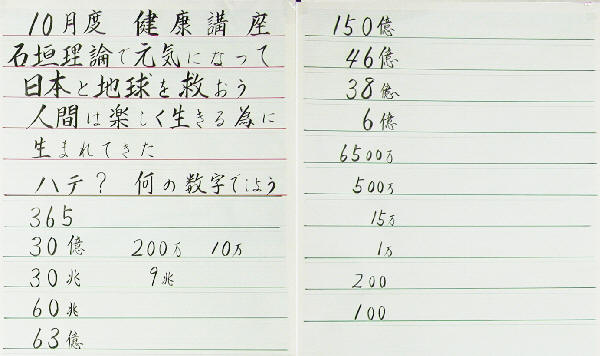 10月度 健康講座
石垣理論で元気になって
日本と地球を救おう
人間は楽しく生きる為に
生まれてきた
ハテ? 何の数字でしょう
365
30億 200万 10万
30兆 9兆
60兆
63億
150億
46億
38億
6億
6500万
500万
15万
1万
200
100